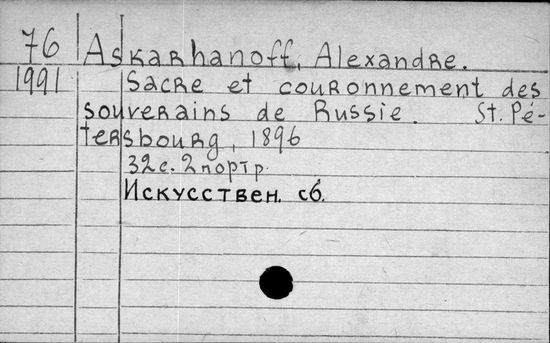 76 Askarhanoff, Alexandre.
1991 Sacre et couronnement des
souverains de Russie. St. Pé-
tersbourg, 1896
32 с. 2 портр.
Искусствен. сб.